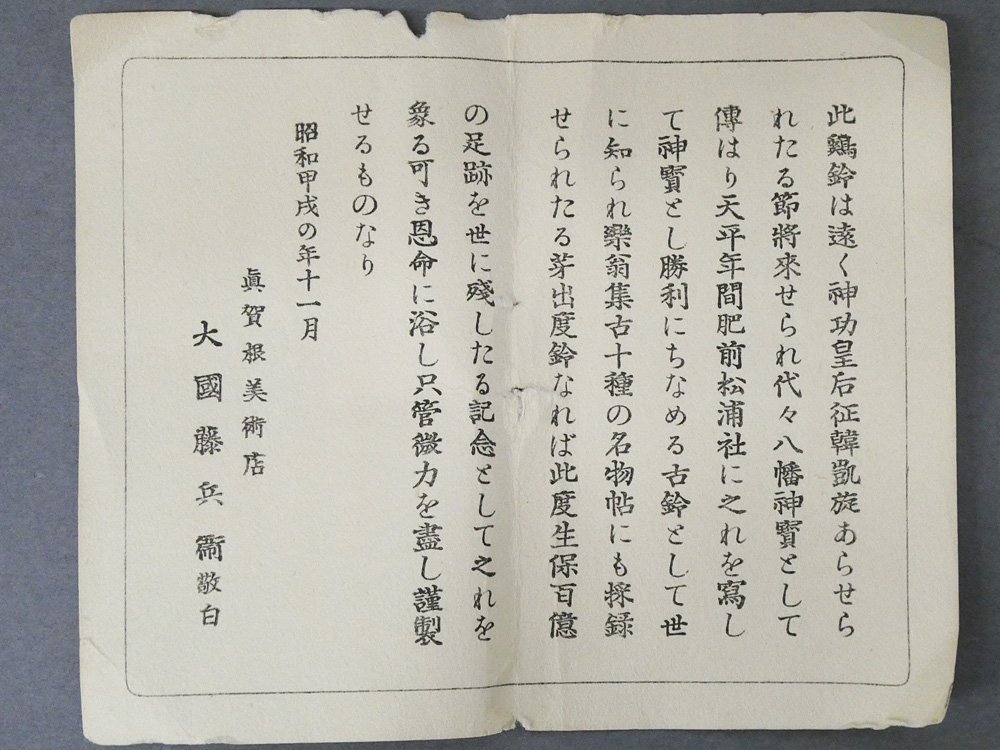 此鷄鈴は遠く神功皇后征韓凱旋あらせら
れたる節將來せられ代々八幡神寳として
傳はり天平年間肥前松浦社に之れを寫し
て神寳とし勝利にちなめる古鈴として世
に知られ樂翁集古十種の名物帖にも採録
せられたる芽出度鈴なれば此度生保百億
の足跡を世に殘したる記念として之れを
象る可き恩命に浴し只管微力を盡し謹製
せるものなり
昭和甲戌の年十一月
眞賀根美術店
大國藤兵衞敬白